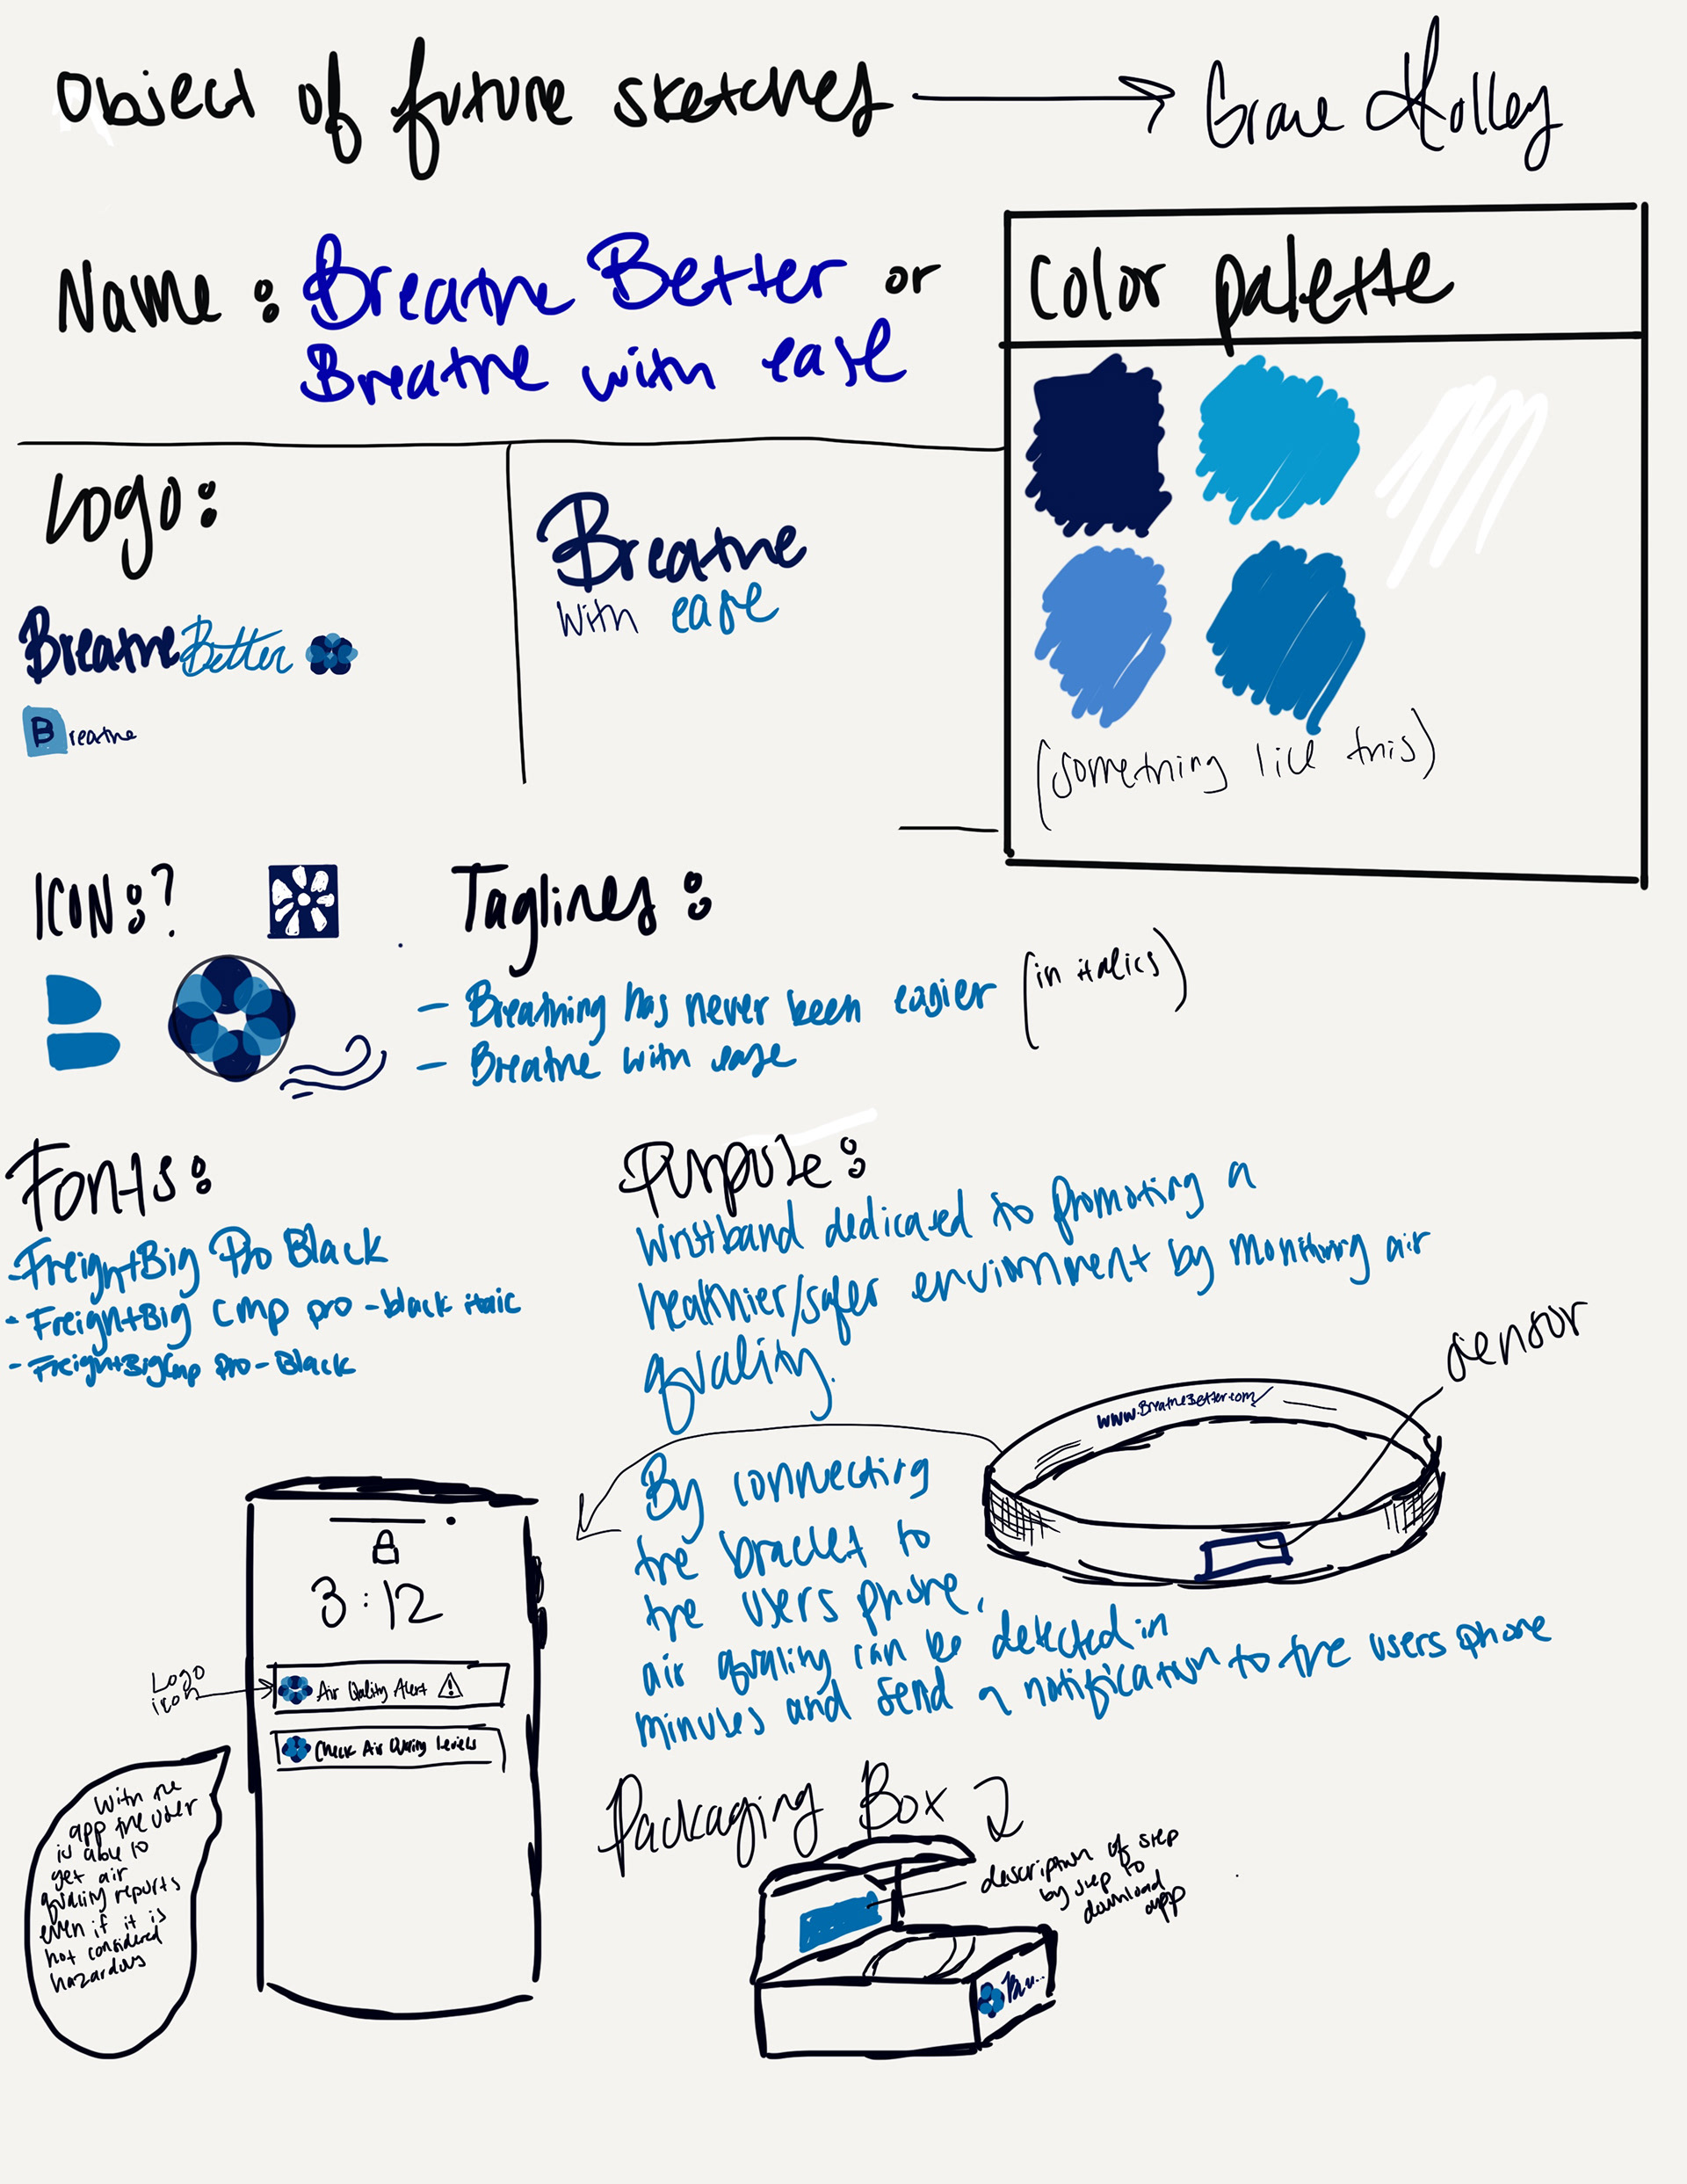 Object of future sketches
Grace Holley
Name: Breathe Better or
Breathe with ease
Color palette
(something like this)
Logo:
BreatheBetter
Breathe
Breathe
with ease
ICON:?
Taglines:
- Breathing has never been easier (in italics)
- Breathe with ease
Fonts:
- FreightBig Pro Black
- FreightBig Cmp pro-black italic
- FreightBigCmp Pro-Black
Purpose:
Wristband dedicated to promoting a
healthier/safer environment by monitoring air
quality.
sensor
www.BreatheBetter.com/
By connecting
the braclet to
the users phone,
air quality can be detected in
minutes and send a notification to the users phone
3:12
Logo
icon
Air Quality Alert
Check Air Quality Levels
with the
app the user
is able to
get air
quality reports
even if it is
not considered
hazardous
Packaging Box 2
description of step
by step to
download
app